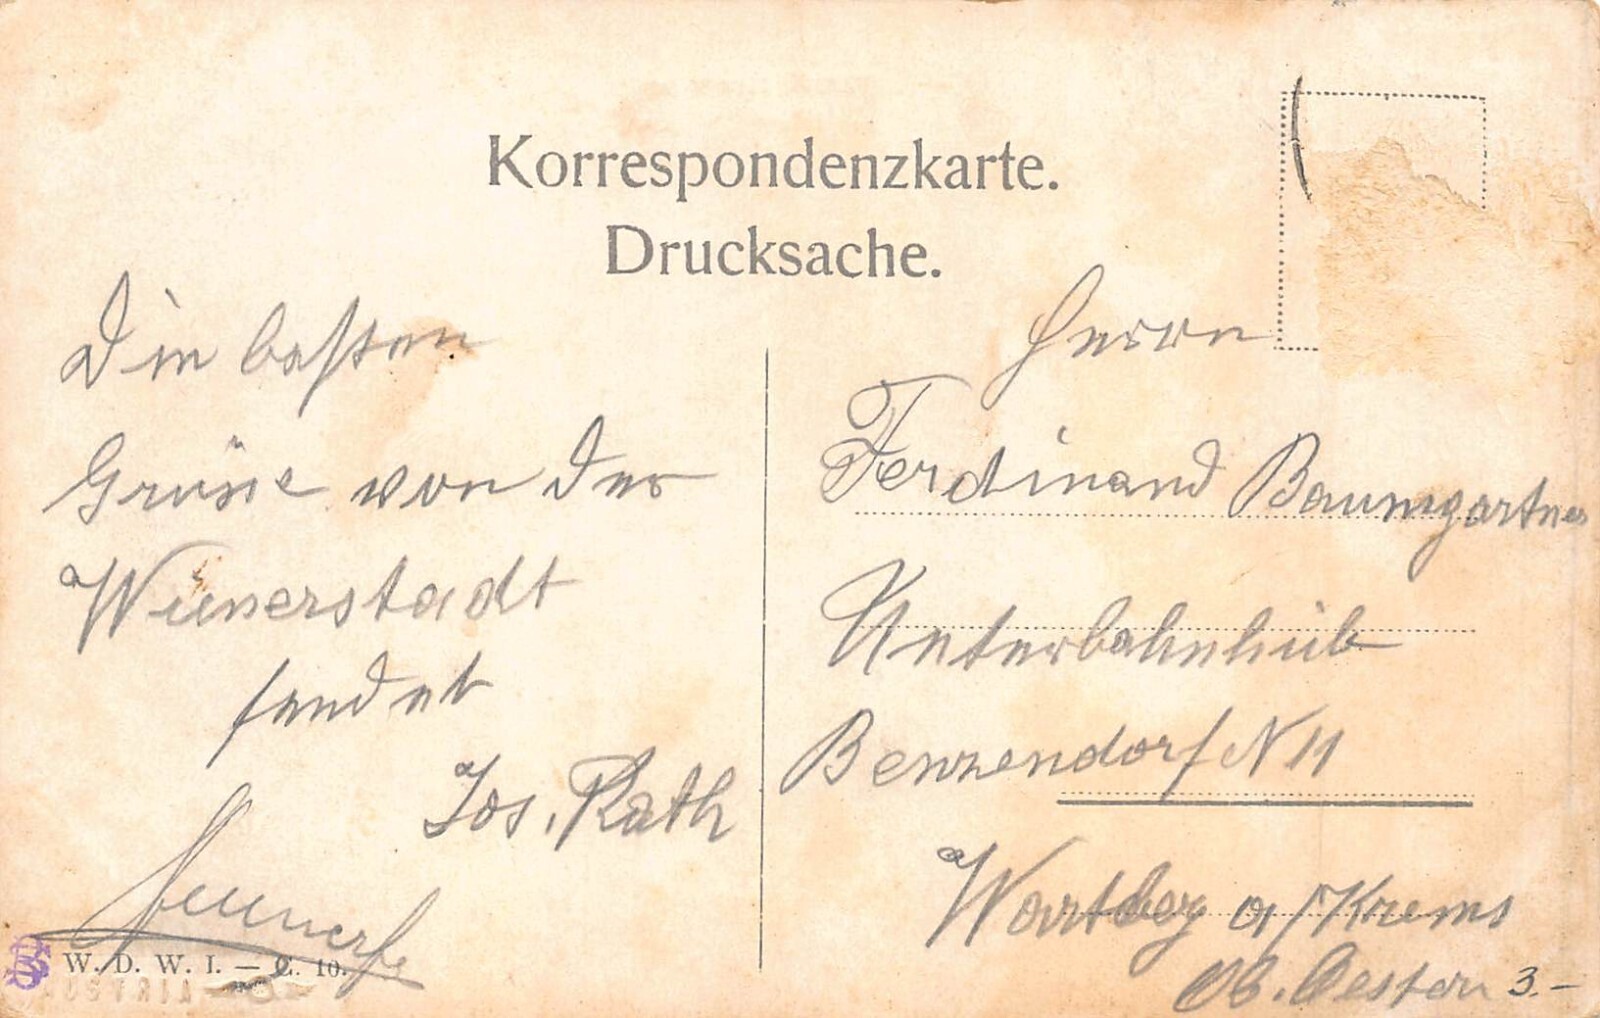 Korrespondenzkarte.
Drucksache.
Die besten
Grüsse von der
Wienerstadt
sendet
Jos. Rath
Herrn
Ferdinand Baumgartner
Benzendorf N 11
Wartberg a/Krems
Ob. Oesterr
3.-
W. D. W. I. — C. 10.
AUSTRIA